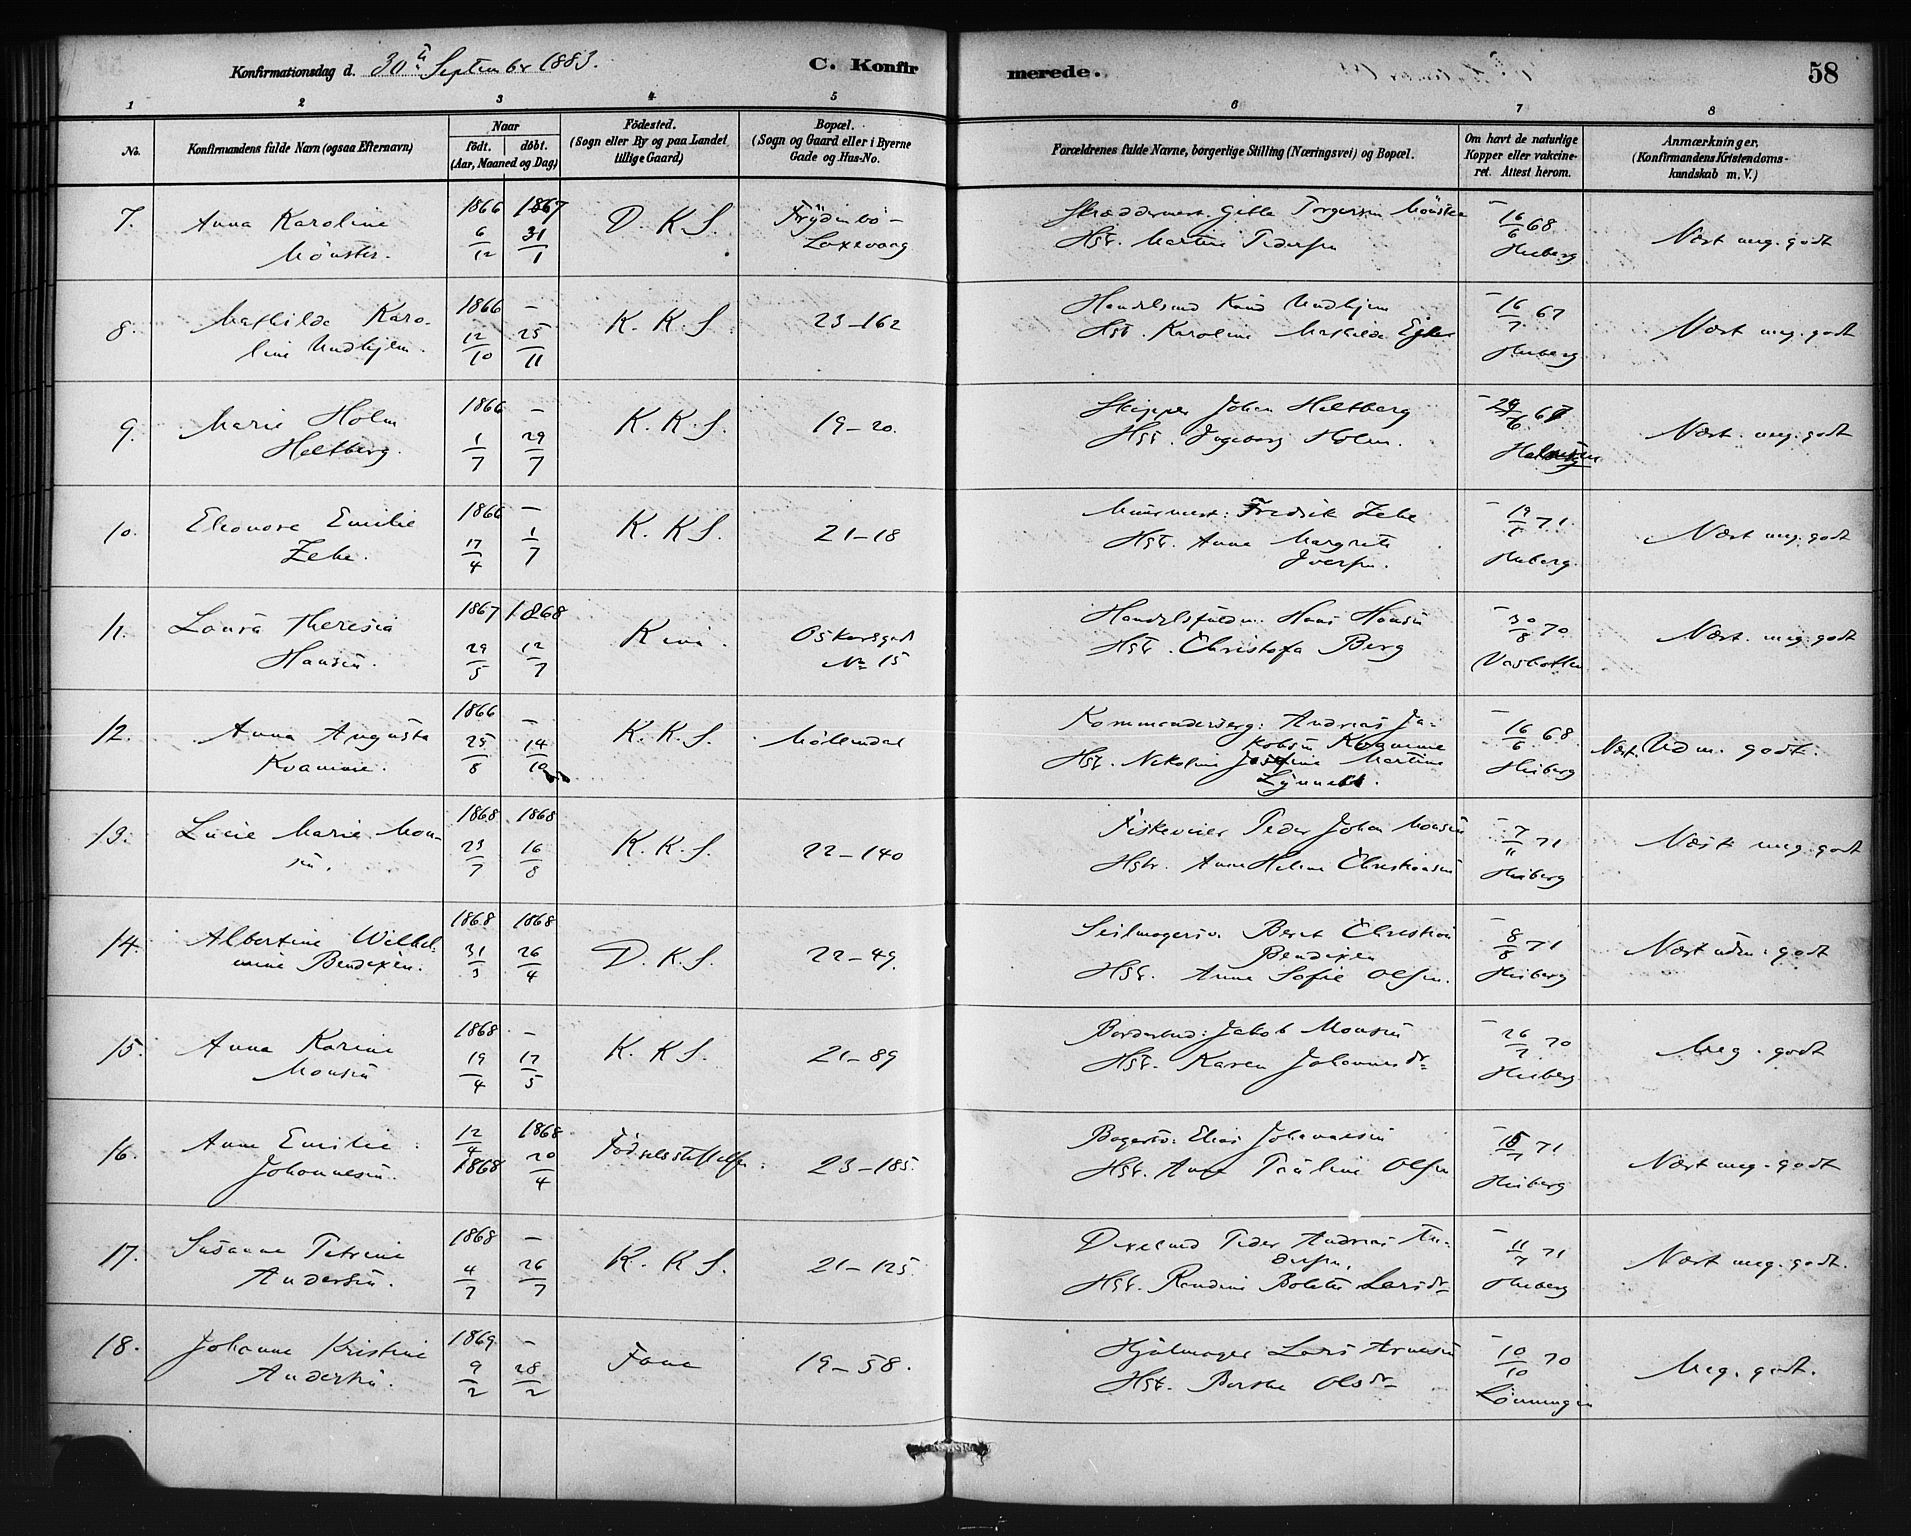 Konfirmationsdag d. 30te September 1883.
C. Konfirmerede.
58
1 2 3 4 5 6 7 8
No.
Konfirmandens fulde Navn (ogsaa Efternavn)
Naar
født. døbt.
(Aar, Maaned og Dag)
Fødested.
(Sogn eller By og paa Landet
tillige Gaard)
Bopæl.
(Sogn og Gaard eller i Byerne
Gade og Hus-No.
Forældrenes fulde Navne, borgerlige Stilling (Næringsvei) og Bopæl.
Om havt de naturlige
Kopper eller vakcine-
ret. Attest herom.
Anmærkninger.
(Konfirmandens Kristendoms-
kundskab m. V.)
7. Anna Karoline
Mønster.
1866 6/12
1867 31/1
D. K. S.
Frydenbø-
Laxevaag
Skræddermest. Gitle Torgersen Mønster
Hst. Martine Pedersen
16/6 68
Heiberg
Nært meg. godt
8. Mathilde Karo-
line Undhjem.
1866 12/10
– 25/11
K. K. S.
23–162
Handelsmd Knud Undhjem
Hst. Karoline Mathilde
16/7 67
Heiberg
Nært meg. godt
9. Marie Holm
Heltberg.
1866 1/7
– 29/7
K. K. S.
19–20.
Skipper Johan Heltberg
Hst. Ingeborg Holm.
Nært. meg. godt
10. Eleonora Emilie
Zehe.
1866 17/4
– 1/7
K. K. S.
21–18
Muurmest: Fredrik Zehe
Hst. Anne Margrete
Iversen.
19/6 71.
Heiberg.
Nært meg. godt
11. Laura Theresia
Hansen.
1867 29/5
1868 12/7
Kinn.
Oskarsgade
No 15
Handelsfuldm. Hans Hansen
Hst. Christofa Berg
30/8 70
Nært. meg. godt
12. Anna Augusta
Kvamme.
1866 25/8
– 14/10
K. K. S.
Møllendal
Kommanderserg: Andreas Ja-
kobsen Kvamme
Hst. Nikoline Josefine Martine
16/6 68
Heiberg
Nært. Udm. godt.
13. Lucie Marie Mon-
sen.
1868 23/7
1868 16/8
K. K. S.
22–140
Fiskeveier Peder Johan Monsen
Hstr. Anne Helene Christiansen
7/11 71
Heiberg
Nært meg. godt
14. Albertine Wilhel-
mine Bendixen.
1868 31/3
1868 26/4
D. K. S.
22–49.
Seilmagersv. Berent Christian
Bendixen
Hst. Anne Sofie Olsen.
8/8 71
Heiberg
Nært udm. godt
15. Anna Karine
Monsen
1868 19/4
– 17/5
K. K. S.
21–89
Bordarbmd: Jakob Monsen
Hst. Karen Johannesdr
26/7 70
Heiberg
Meg. godt
16. Anna Emilie
Johannesen.
12/4 1868
1868 20/4
Fødselsstiftelsen.
23–185.
Bagersv: Elias Johannesen
Hst. Anne Pauline Olsen
15/7 71
Heiberg
Nært meg. godt
17. Susanne Petrine
Andersen.
1868 4/7
– 26/7
K. K. S.
21–125.
Dixelmd Peder Andreas An-
dersen,
Hst. Randine Bolette Larsdr
11/7 71
Heiberg
Nært meg. godt.
18. Johanne Kristine
Andersen.
1869. 9/2
– 28/2
Fane
19–58.
Hjulmager Lars Arnesen
Hst. Berthe Olsdr
10/10 70
Lønningen
Meg. godt.